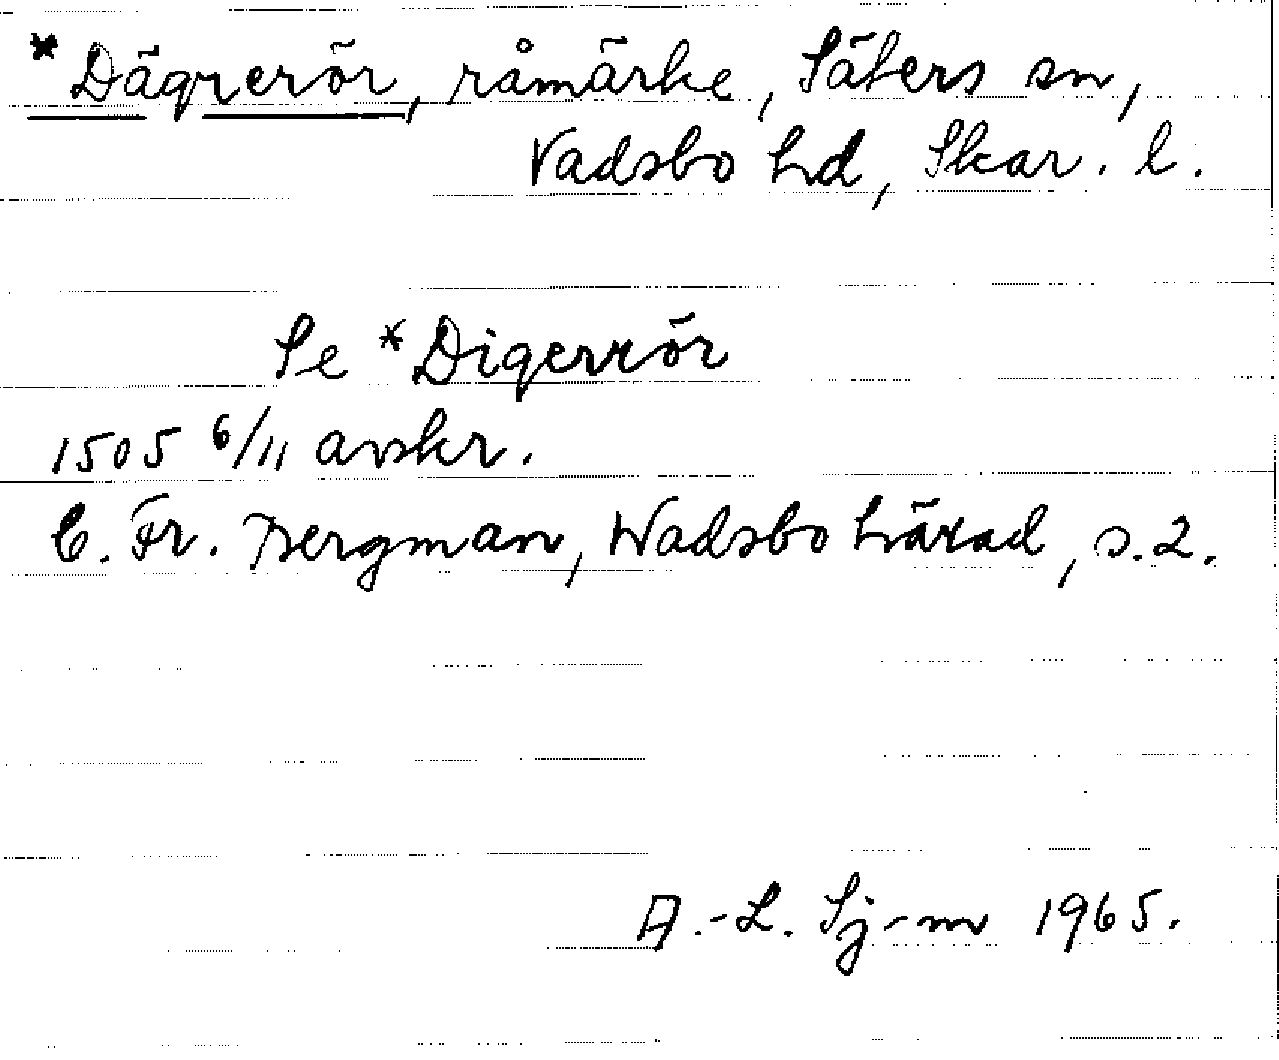 *Dägrerör, råmärke, Säters sn,
Vadsbo hd, Skar. l.
Se *Digerrör
1505 6/11 avskr.
C. Fr. Bergman, Wadsbo härad, s. 2.
A.-L. Sj-m 1965.